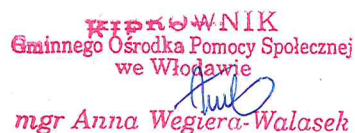 KIEROWNIK
Gminnego Ośrodka Pomocy Społecznej
we Włodawie
mgr Anna Wegiera-Walasek